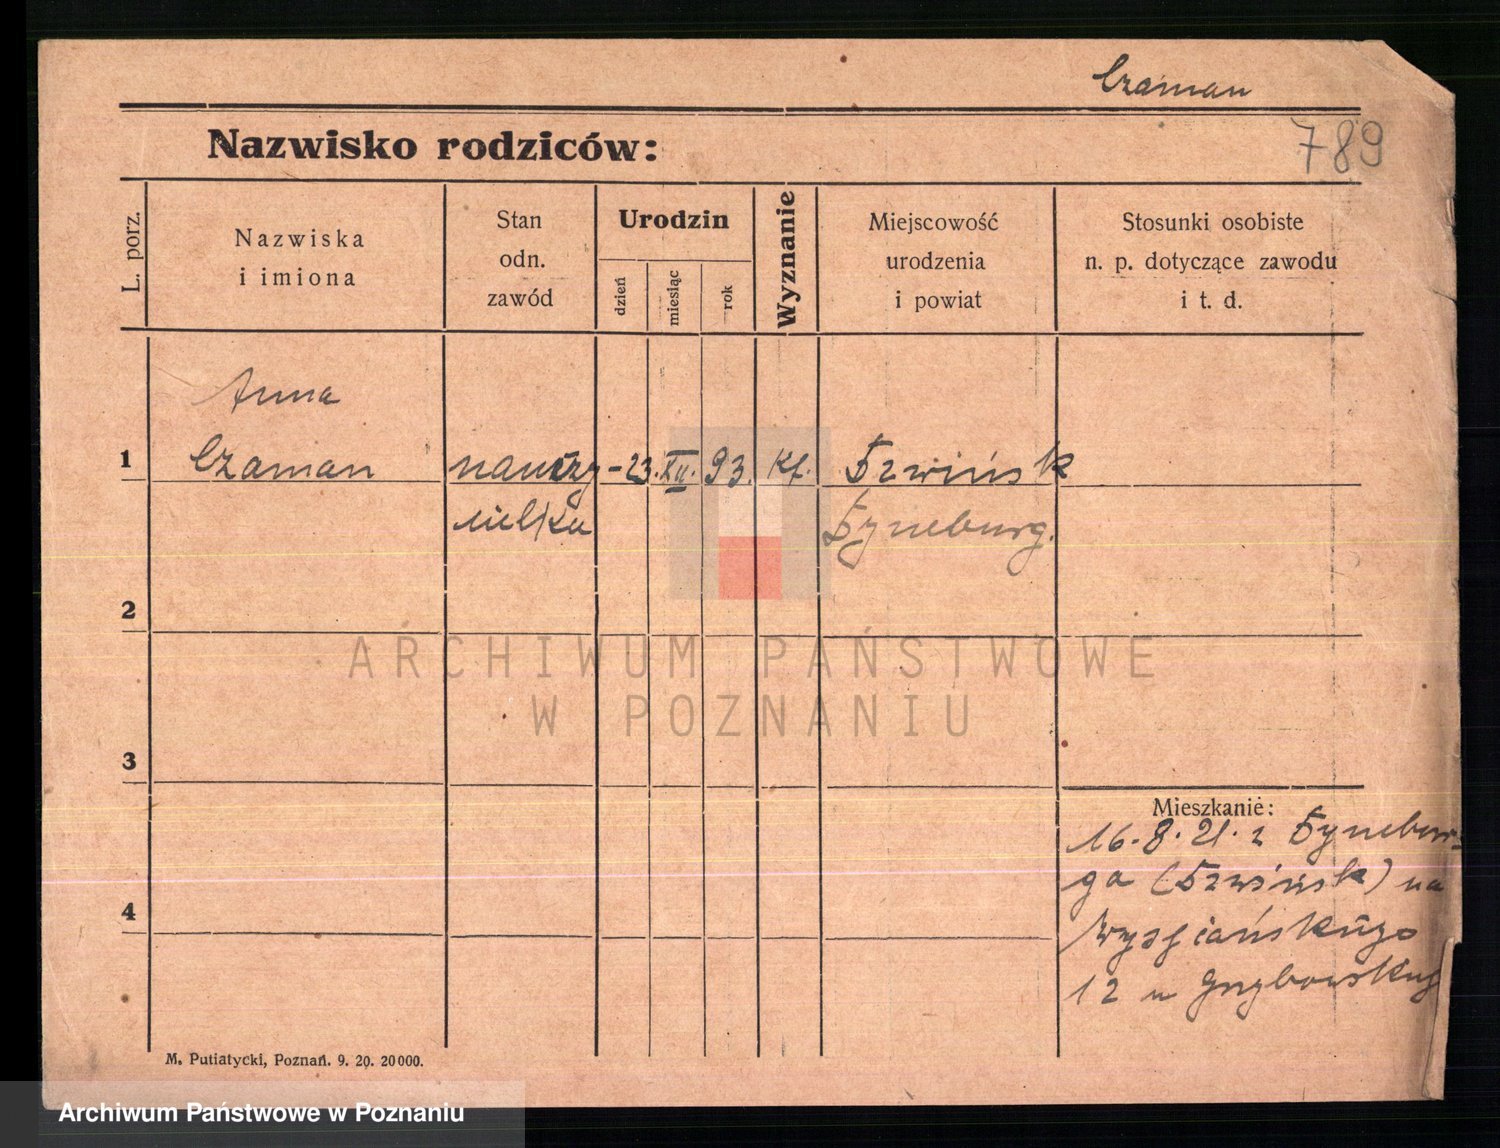 Czaman
789
Nazwisko rodziców:
L. porz.
Nazwiska
i imiona
Stan
odn.
zawód
Urodzin
dzień
miesiąc
rok
Wyznanie
Miejscowość
urodzenia
i powiat
Stosunki osobiste
n. p. dotyczące zawodu
i t. d.
Anna
1 Czaman nauczy- 23. XII. 93. Kt.
cielka
2
3
Mieszkanie:
16. 8. 21. z
na
4
12 u
M. Putiatycki, Poznań. 9. 20. 20000.
ARCHIWUM PAŃSTWOWE
W POZNANIU
Archiwum Państwowe w Poznaniu